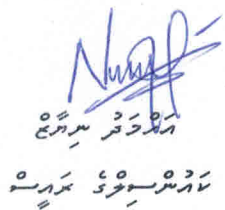 އަޙްމަދު ނިޔާޒް
ކައުންސިލްގެ ރައީސް